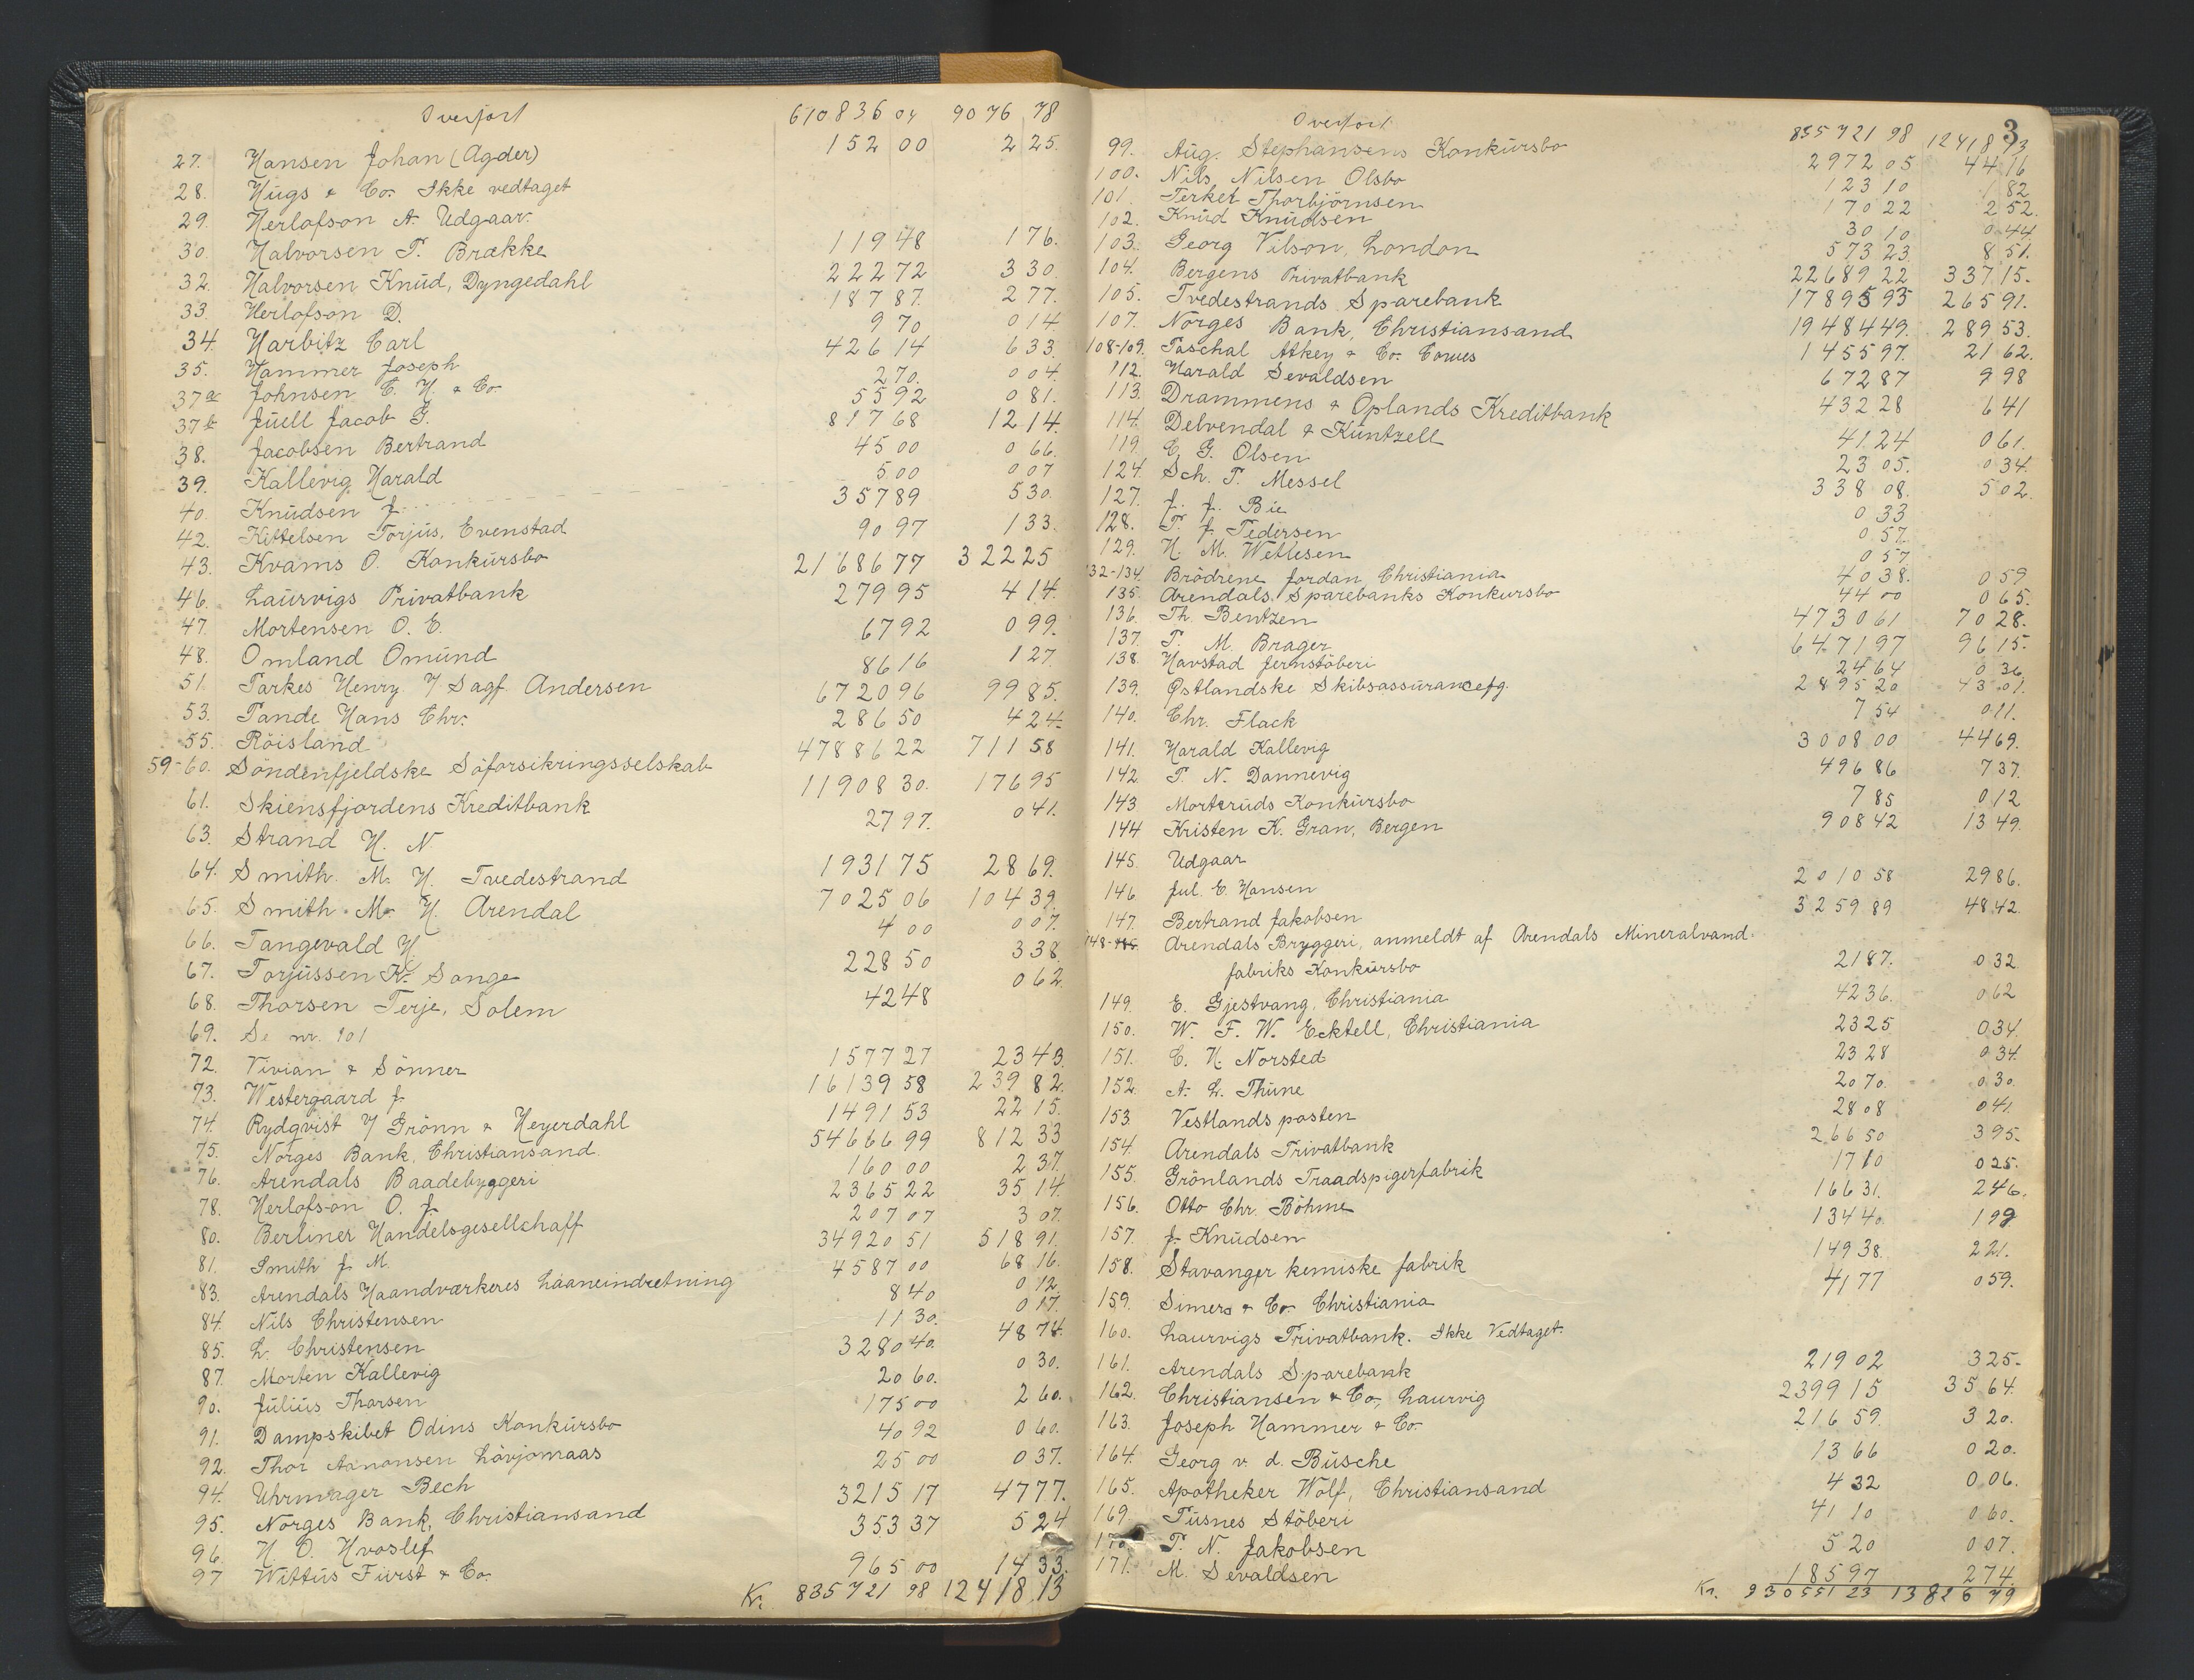 Overført 610836 04 9076 78
27. Hansen Johan (Agder) 152 00 2 25.
28. Hugs & Co. Ikke vedtaget
29. Herlofson A. Udgaar.
30. Halvorsen P. Brække 119 48 1 76.
32. Halvorsen Knud, Dyngedahl 222 72 3 30.
33. Herlofson D. 187 87. 2 77.
34. Harbitz Carl 9 70 0 14.
35. Hammer Joseph 426 14 6 33.
37a Johnsen C. H. & Co. 2 70. 0 04.
37b Juell Jacob G. 55 92 0 81.
38. Jacobsen Bertrand 817 68 12 14.
39. Kallevig Harald 45 00 0 66.
40. Knudsen J. 5 00 0 07
42. Kittelsen Torjus, Evenstad 357 89 5 30.
43. Kvams O. Konkursbo 90 97 1 33.
46. Laurvigs Privatbank 21686 77 322 25
47. Mortensen O. E. 279 95 4 14.
48. Omland Omund 67 92 0 99.
51. Parkes Henry 7 Sagf. Andersen 86 16 1 27.
53. Pande Hans Chr. 6720 96 99 85.
55. Röisland 286 50 4 24.
59-60. Söndenfjeldske Söforsikringsselskab 47886 22 711 58
61. Skiensfjordens Kreditbank 11908 30. 176 95
63. Strand H. N 27 97. 0 41.
64. Smith M. H. Tvedestrand 1931 75 28 69.
65. Smith M. H. Arendal 7025 06 104 39.
66. Tangevald H. 4 00 0 07.
67. Torjussen K. Songe 228 50 3 38.
68. Thorsen Terje, Solem 42 48 0 62.
69. Se nr. 101
72. Vivian & Sönner 1577 27 23 43.
73. Westergaard J. 16139 58 239 82.
74. Rydqvist 7 Grönn & Heyerdahl 1491 53 22 15.
75. Norges Bank, Christiansand. 54666 99 812 33
76. Arendals Baadebyggeri 160 00 2 37.
78. Herlofson O. J. 2365 22 35 14.
80. Berliner Handelsgesellschaff 207 07 3 07.
81. Smith J. M. 34920 51 518 91.
83. Arendals Haandværkeres Laaneindretning 4587 00 68 16.
84. Nils Christensen 8 40 0 12.
85. L. Christensen 11 30. 0 17.
87. Morten Kallevig 3280 40. 48 74.
90. Julius Thorsen 20 60. 0 30.
91. Dampskibet Odins Konkursbo 175 00 2 60.
92. Thor Aanonsen Lövjomaas 40 92 0 60.
94. Uhrmager Bech 25 00 0 37.
95. Norges Bank, Christiansand 3215 17 47 77.
96. H. O. Hvoslef 353 37 5 24
97 Wittus Furst & Co. 965 00 14 33.
Kr. 835721 98 12418.13
3
Overført 835721 98 12418 13
99. Aug. Stephansens Konkursbo 2972 05 44 16
100. Nils Nilsen Olsbo 123 10 1 82
101. Terkel Thorbjörnsen 170 22 2 52.
102. Knud Knudsen 30 10 0 44
103. Georg Vilson, London 573 23 8 51.
104. Bergens Privatbank 22689 22 337 15.
105. Tvedestrands Sparebank 17895 95 265 91.
107. Norges Bank, Christiansand 19484 49. 289 53.
108-109. Paschal Atkey & Co. Cowes 1455 97. 21 62.
112. Harald Sevaldsen 672 87 9 98
113. Drammens & Oplands Kreditbank 432 28 6 41
114. Delvendal & Küntzell 41 24 0 61.
119. C. G. Olsen 23 05. 0 34.
124. Sch. P. Messel 338 08. 5 02.
127. J. J. Bie 0 33
128. P. J. Pedersen 0 57.
129. H. M. Wetlesen 0 57
132-134. Brödrene Jordan, Christiania 40 38. 0 59
135. Arendals Sparebanks Konkursbo 44 00 0 65.
136. Th. Bentzen 4730 61 70 28.
137. P. M. Brager 6471 97 96 15.
138. Havstad Jernstöberi 24 64 0 36
139. Østlandske Skibsassurancefg. 2895 20 43 01.
140. Chr. Flack 7 54 0 11.
141. Harald Kallevig 3008 00 44 69.
142 P. N. Dannevig 496 86 7 37.
143 Morteruds Konkursbo 7 85 0 12
144 Kristen K. Gran, Bergen 908 42 13 49.
145. Udgaar
146 Jul. E. Hansen 2010 58 29 86.
147. Bertrand Jakobsen 3259 89 48 42.
148- Arendals Bryggeri, anmeldt af Arendals Mineralvand-
fabriks Konkursbo 21 87. 0 32
149. E. Gjestvang, Christiania 42 36. 0 62
150. W. F. W. Ecktell, Christiania 23 25 0 34.
151. C. H. Norsted 23 28 0 34.
152. A. L. Thune 20 70. 0 30.
153. Vestlandsposten 28 08 0 41.
154. Arendals Privatbank 266 50 3 95.
155. Grönlands Traadspigerfabrik 17 10 0 25.
156. Otto Chr. Böhme 166 31. 2 46.
157. J. Knudsen 134 40. 1 99
158. Stavanger kemiske fabrik 149 38. 2 21.
159. Simers & Co. Christiania 41 77 0 59.
160. Laurvigs Privatbank. Ikke Vedtaget.
161. Arendals Sparebank 219 02 3 25.
162. Christiansen & Co, Laurvig 2399 15 35 64.
163. Joseph Hammer & Co. 216 59. 3 20.
164. Georg v. d. Büsche 13 66 0 20.
165. Apotheker Wolf, Christiansand 4 32 0.06.
169. Pusnes Stöberi 41 10 0 60.
170 P. N. Jakobsen 5 20 0 07.
171. M. Sevaldsen 185 97 2 74.
Kr. 930551 23 13826 79